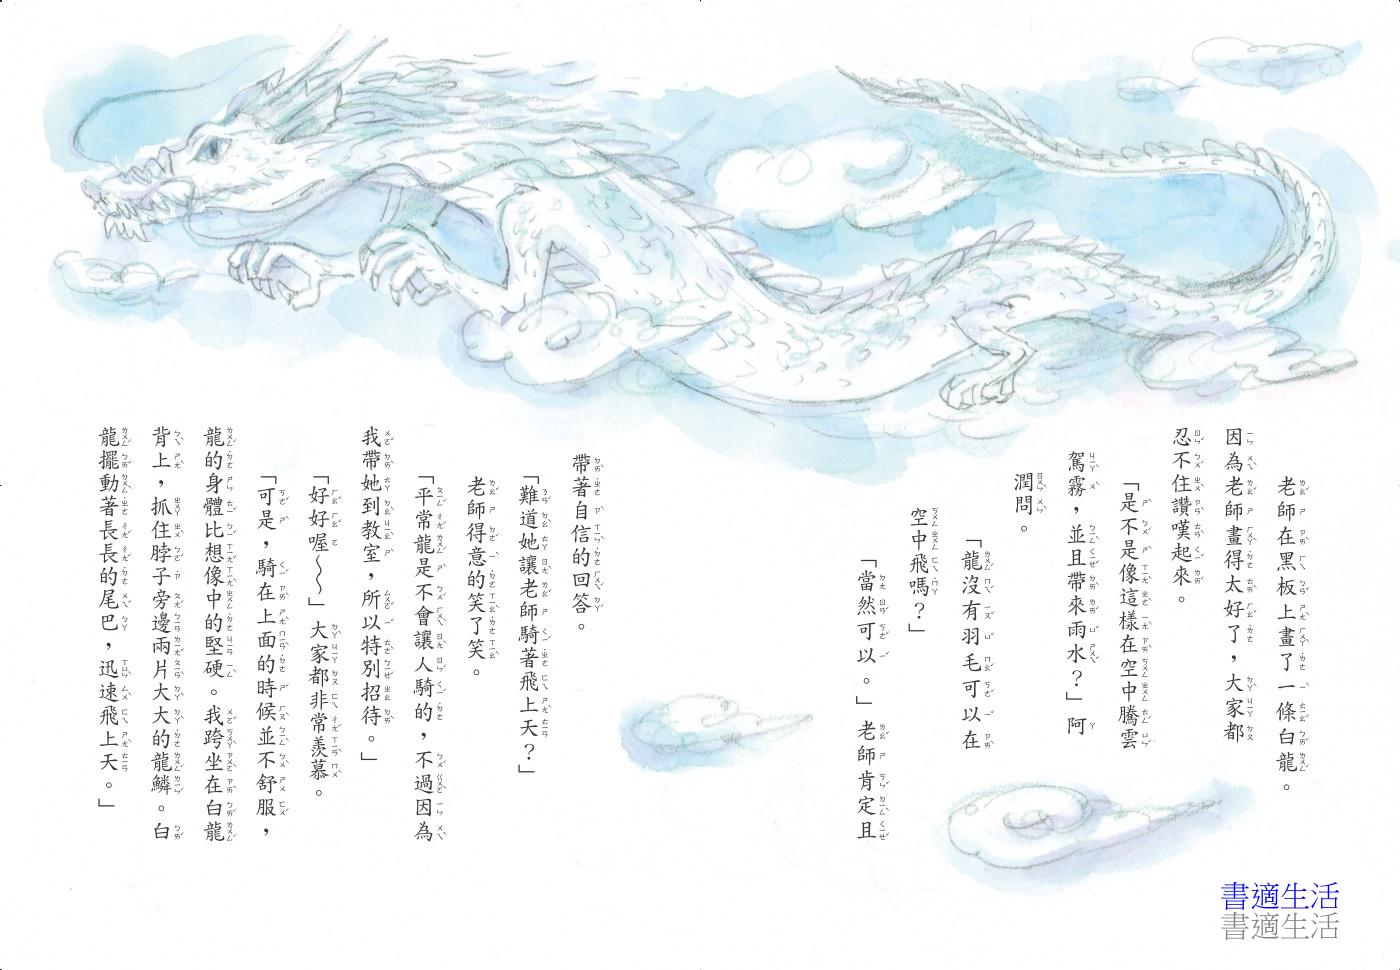 老師在黑板上畫了一條白龍。
因為老師畫得太好了，大家都
忍不住讚嘆起來。
「是不是像這樣在空中騰雲
駕霧，並且帶來雨水？」阿
潤問。
「龍沒有羽毛可以在
空中飛嗎？」
「當然可以。」老師肯定且
帶著自信的回答。
「難道她讓老師騎著飛上天？」
老師得意的笑了笑。
「平常龍是不會讓人騎的，不過因為
我帶她到教室，所以特別招待。」
「好好喔～～」大家都非常羨慕。
「可是，騎在上面的時候並不舒服，
龍的身體比想像中的堅硬。我跨坐在白龍
背上，抓住脖子旁邊兩片大大的龍鱗。白
龍擺動著長長的尾巴，迅速飛上天。」
書適生活
書適生活